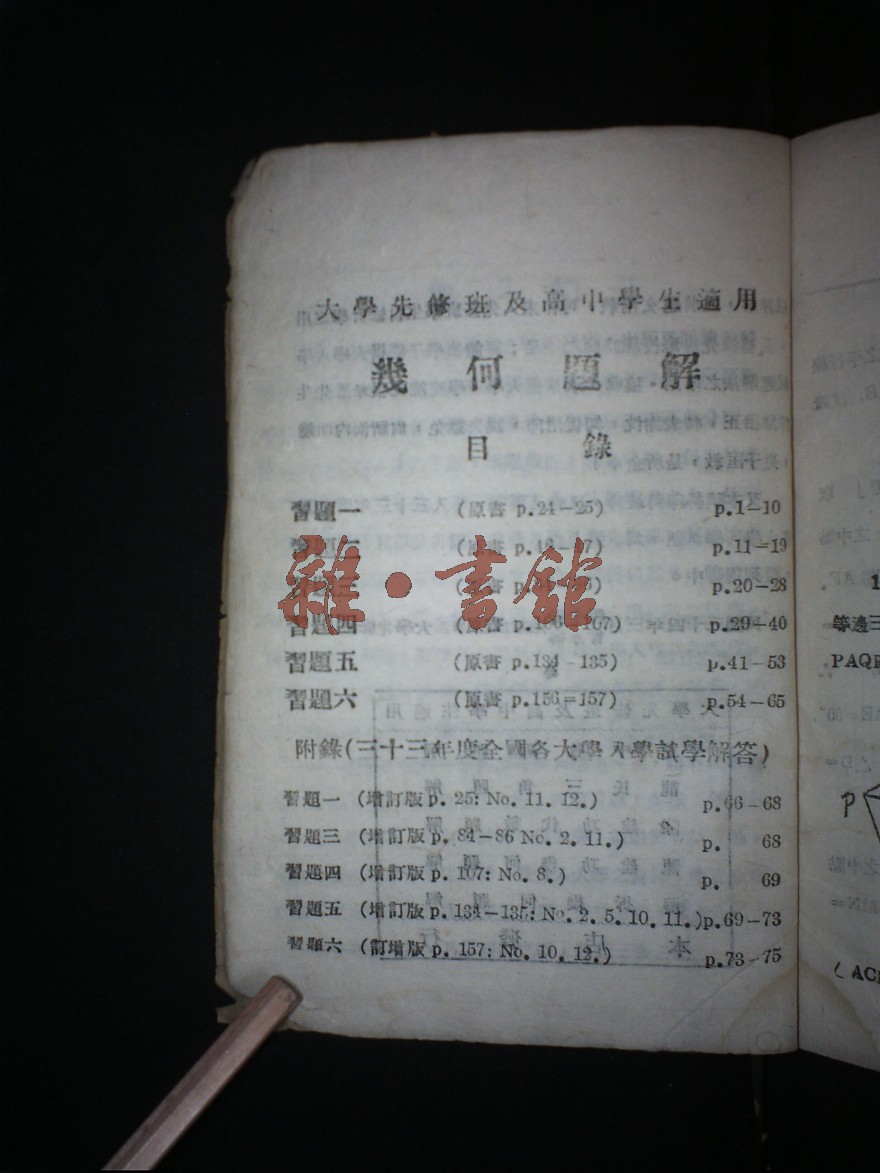 大學先修班及高中學生適用
幾何題解
目錄
習題一 (原書 p.24-25) p.1-10
習題二 (原書 p.46-47) p.11-19
習題三 (原書 p. p.20-28
習題四 (原書 p.106-107) p.29-40
習題五 (原書 p.134-135) p.41-53
習題六 (原書 p.156=157) p.54-65
雜·書館
附錄(三十三年度全國各大學入學試學解答)
習題一 (增訂版 p. 25: No. 11. 12.) p.66-68
習題三 (增訂版 p. 84-86 No. 2. 11.) p. 68
習題四 (增訂版 p. 107: No. 8.) p. 69
習題五 (增訂版 p. 134-135: No. 2. 5. 10. 11.)p.69-73
習題六 (訂增版 p. 157: No. 10. 12.) p.73-75
之平行線
B.
取
之中點
AF.
等邊三
PAQR
R=60°
∠D=
P
之中點
MN=
(AC